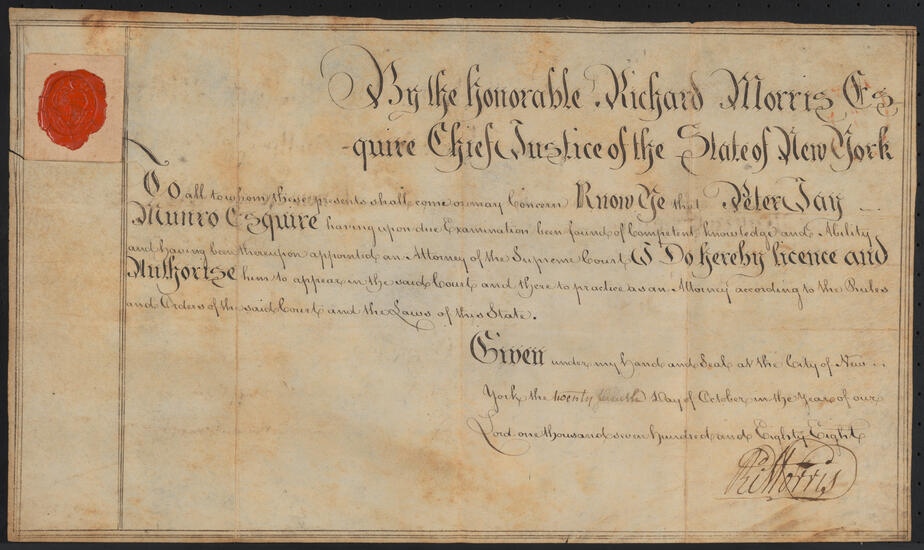 By the honorable Richard Morris Es
-quire Chief Justice of the State of New York
To all to whom these presents shall come or may Concern Know Ye that Peter Jay
Munro Esquire having upon due Examination been found of Competent knowledge and Ability
and having been thereupon appointed an Attorney of the Supreme Court, I Do hereby licence and
Authorise him to appear in the said Court and there to practice as an Attorney according to the Rules
and Orders of the said Court and the Laws of this State.
Given under my hand and Seal at the City of New
York the twenty Day of October in the Year of our
Lord one thousand seven hundred and Eighty Eight
Ri Morris